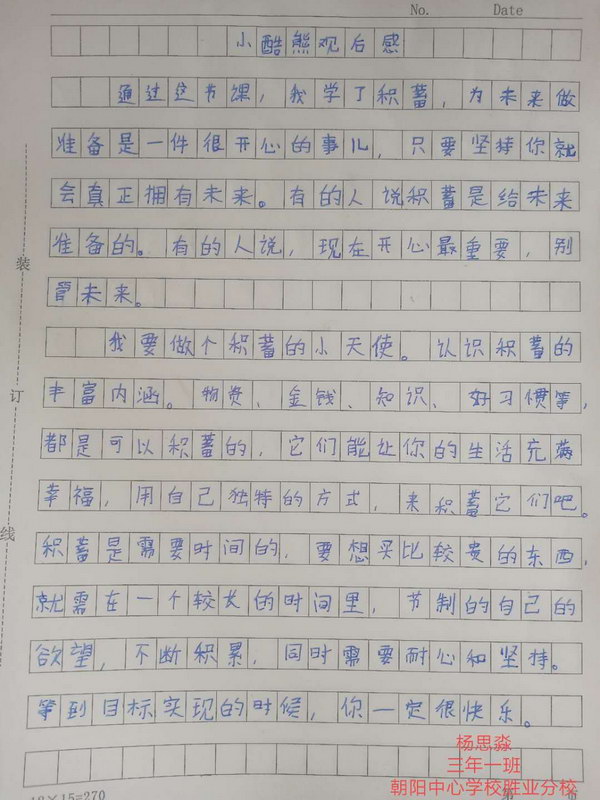 No. Date
小酷熊观后感
通过这节课，我学了积蓄，为未来做
准备是一件很开心的事儿，只要坚持你就
会真正拥有未来。有的人说积蓄是给未来
准备的。有的人说，现在开心最重要，别
管未来。
我要做个积蓄的小天使。认识积蓄的
丰富内涵。物资、金钱、知识、好习惯等，
都是可以积蓄的，它们能让你的生活充满
幸福，用自己独特的方式，来积蓄它们吧。
积蓄是需要时间的，要想买比较贵的东西，
就需在一个较长的时间里，节制的自己的
欲望，不断积累，同时需要耐心和坚持。
等到目标实现的时候，你一定很快乐。
装
订
线
杨思淼
三年一班
朝阳中心学校胜业分校
18×15=270
第